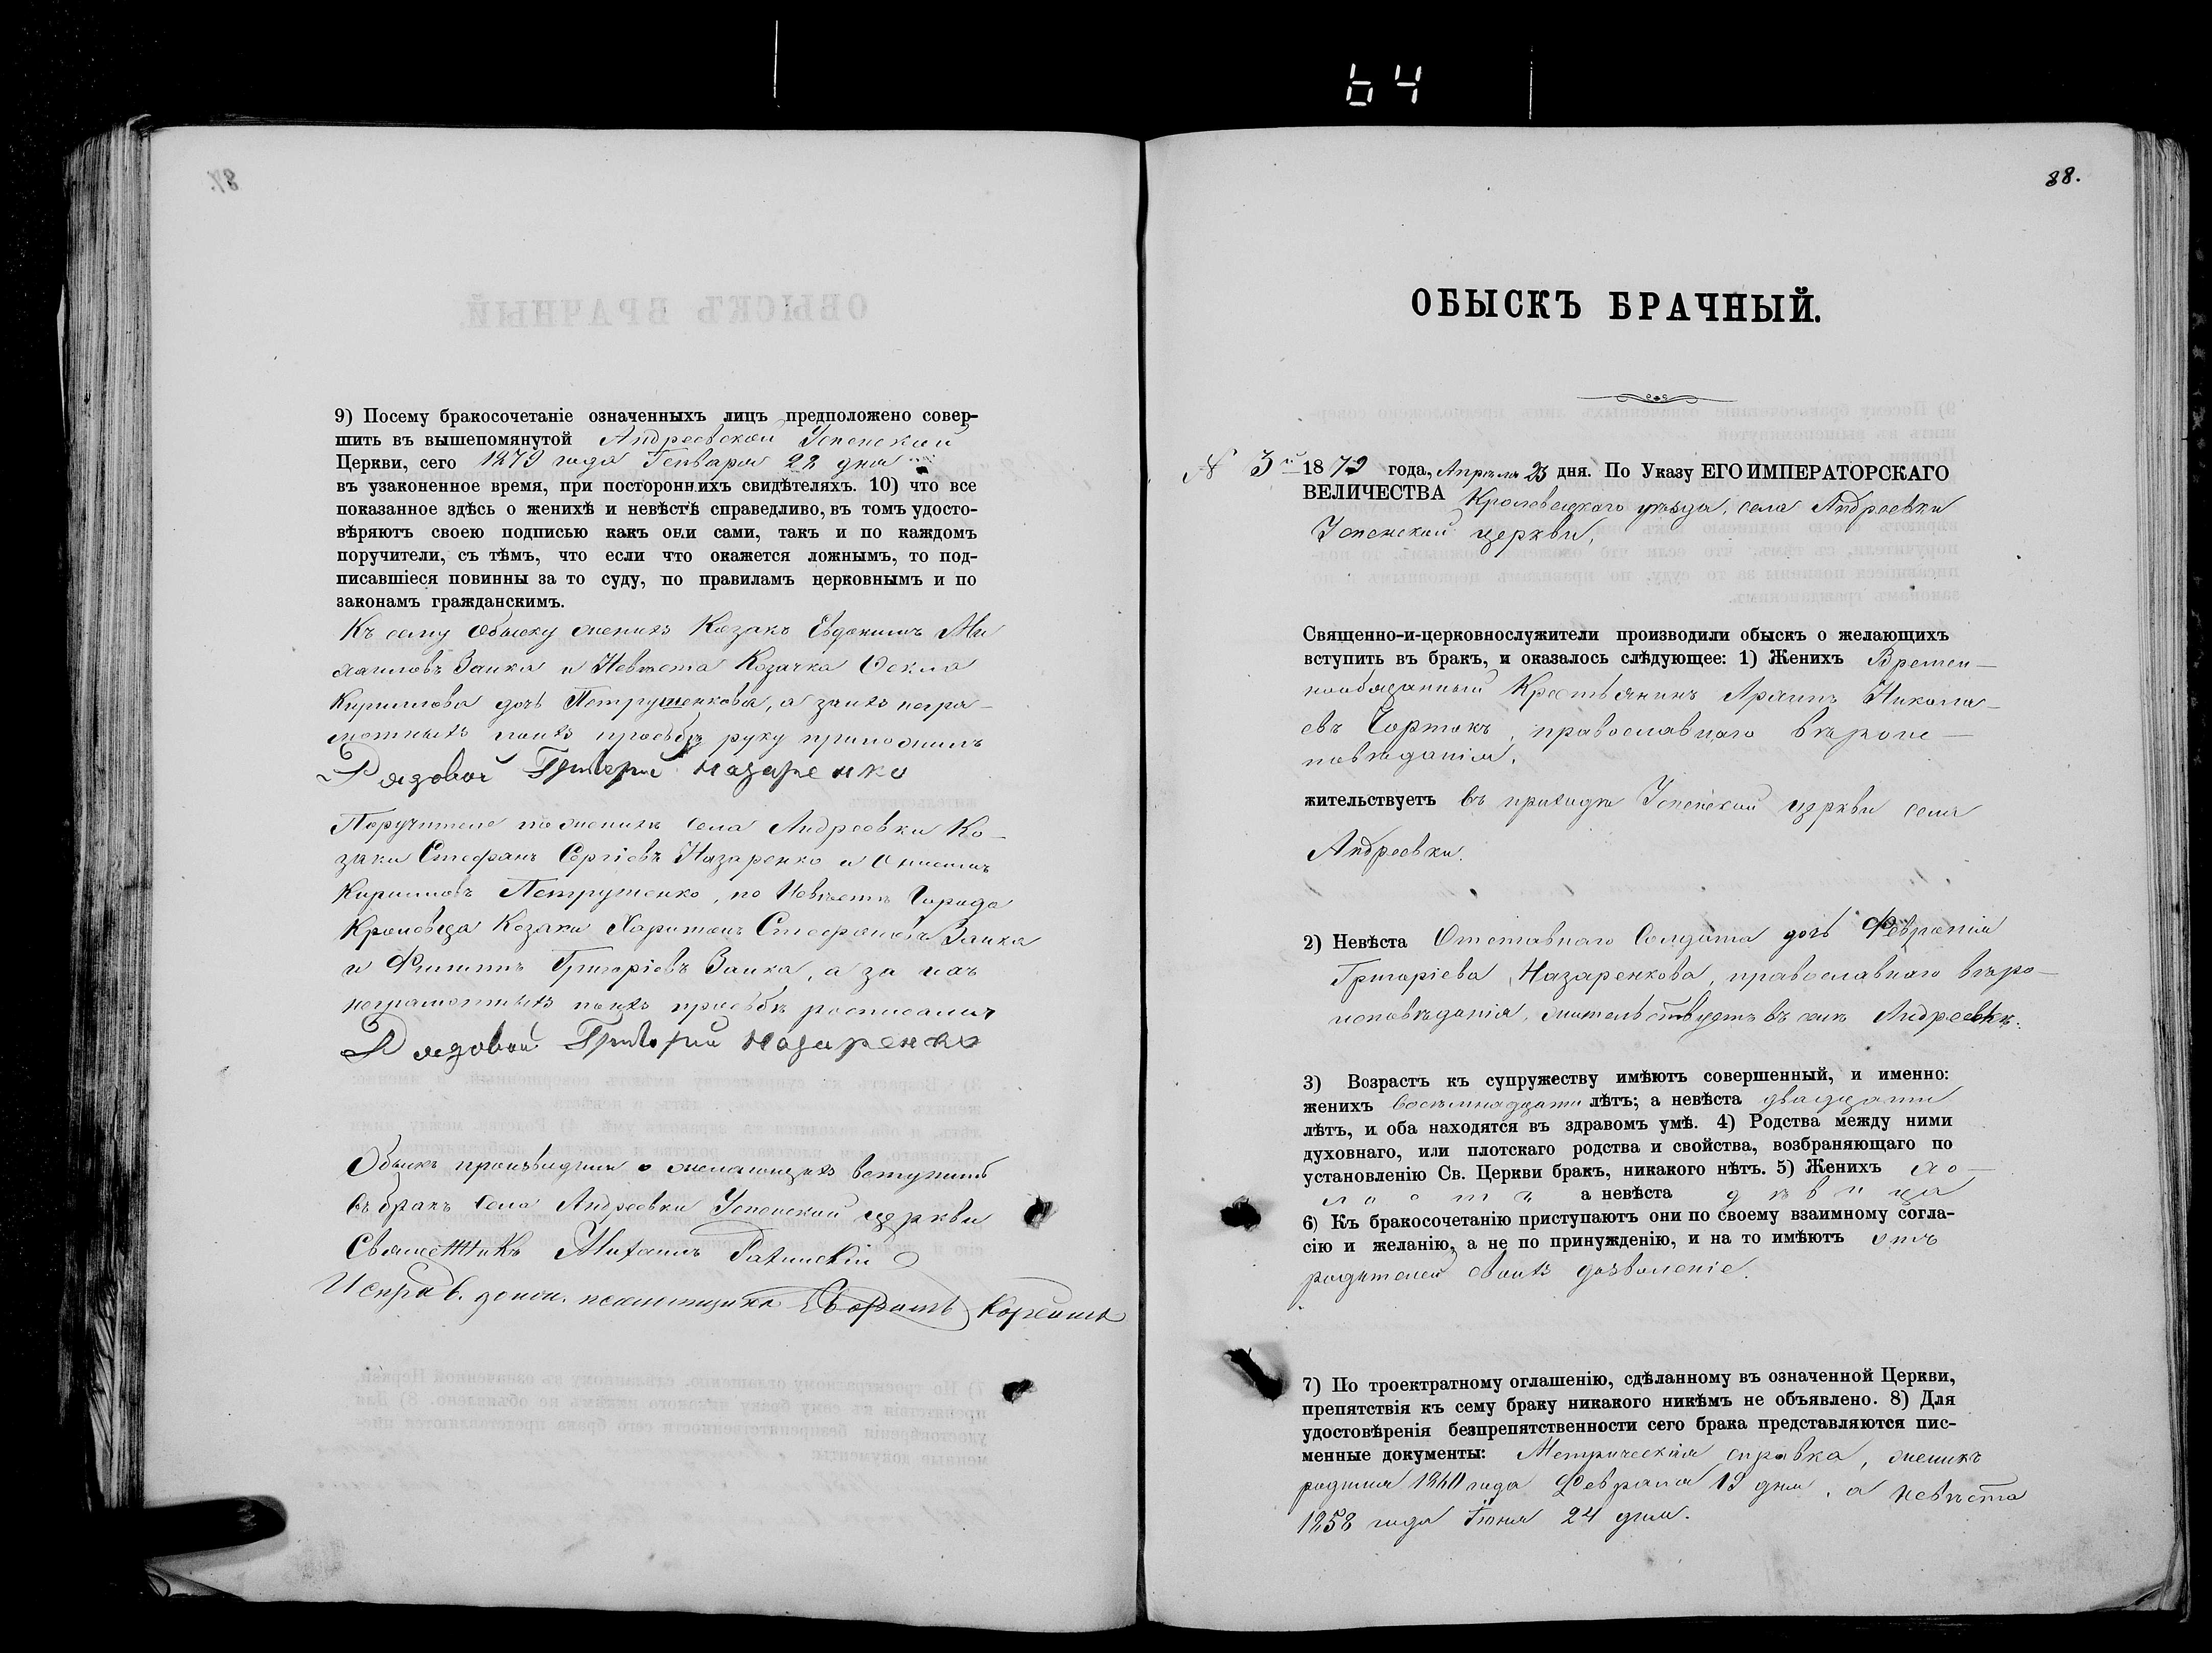 64
88.
9) Посему бракосочетаніе означенныхъ лицъ предположено совер-
шить въ вышепомянутой Андреевской Успенской
Церкви, сего 1879 года Генваря 22 дня
въ узаконенное время, при постороннихъ свидѣтеляхъ. 10) что все
показанное здѣсь о женихѣ и невѣстѣ справедливо, въ томъ удосто-
вѣряютъ своею подписью какъ они сами, такъ и по каждомъ
поручители, съ тѣмъ, что если что окажется ложнымъ, то под-
писавшіеся повинны за то суду, по правиламъ церковнымъ и по
законамъ гражданскимъ.
Къ сему обыску женихъ Козакъ Евдокимъ Ми
хаиловъ Заика и Невѣста Козачка Фекла
Кириллова дочь Петрушенкова, а за ихъ негра-
мотныхъ по ихъ прозьбѣ руку приложилъ
Рядовой Григорій Назаренко
Поручители по женихѣ села Андреевки Ко-
заки Стефанъ Сергіевъ Назаренко и
Кирилловъ Петрушенко, по Невѣстѣ Города
Кролевца Козаки Харитонъ Стефановъ Заика
и Филиппъ Григоріевъ Заика, а за ихъ
неграмотныхъ по ихъ прозьбѣ росписался
Рядовой Григорій Назаренко
Обыскъ производили о желающихъ вступить
въ бракъ села Андреевки Успенской церкви
Священникъ Михаилъ
Исправ. должн. псаломщика
ОБЫСКЪ БРАЧНЫЙ.
№ 3й 1879 года, Апрѣля 23 дня. По Указу ЕГО ИМПЕРАТОРСКАГО
ВЕЛИЧЕСТВА Кролевецкаго уѣзда, села Андреевки
Успенской церкви,
Священно-и-церковнослужители производили обыскъ о желающихъ
вступить въ бракъ, и оказалось слѣдующее: 1) Женихъ Времен-
нообязанный Крестьянинъ Николa-
евъ Чортокъ, православнаго вѣроис-
повѣданія,
жительствуетъ въ приходѣ Успенской церкви села
Андреевки.
2) Невѣста Отставнаго Солдата дочь Февронія
Григоріева Назаренкова, православнаго вѣро-
исповѣданія, жительствуетъ въ селѣ Андреевкѣ.
3) Возрастъ къ супружеству имѣютъ совершенный, и именно:
женихъ восемнадцати лѣтъ; а невѣста двадцати
лѣтъ, и оба находятся въ здравомъ умѣ. 4) Родства между ними
духовнаго, или плотскаго родства и свойства, возбраняющаго по
установленію Св. Церкви бракъ, никакого нѣтъ. 5) Женихъ хо-
лостъ а невѣста дѣвица
6) Къ бракосочетанію приступаютъ они по своему взаимному согла-
сію и желанію, а не по принужденію, и на то имѣютъ отъ
родителей своихъ дозволеніе.
7) По троектратному оглашенію, сдѣланному въ означенной Церкви,
препятствія къ сему браку никакого никѣмъ не объявлено. 8) Для
удостовѣренія безпрепятственности сего брака представляются пис-
менные документы: Метрическая справка, женихъ
родился 1860 года Февраля 19 дня, а невѣста
1858 года Іюня 24 дня.